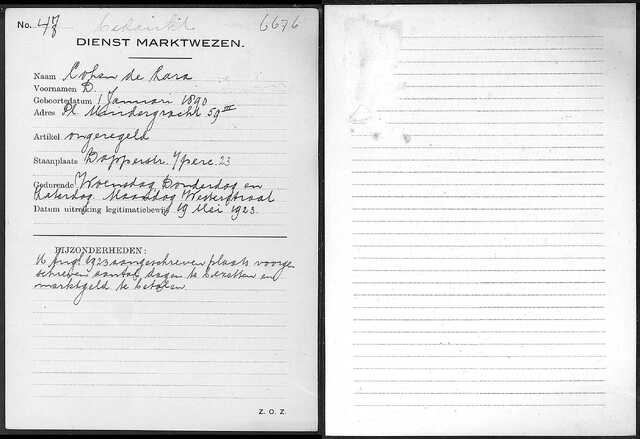 No. 47 bedankt 6676
DIENST MARKTWEZEN.
Naam Cohen de Lara
Voornamen D.
Geboortedatum 1 Januari 1890
Adres Pl. Muidergracht 59 III
Artikel ongeregeld
Staanplaats Dapperstr. Yperc. 23
Gedurende Woensdag, Donderdag en
Zaterdag. Maandag Westerstraat
Datum uitreiking legitimatiebewijs 19 Mei 1923.
BIJZONDERHEDEN:
16 Aug. 1923 aangeschreven plaats voorge
schreven aantal dagen te bezetten en
marktgeld te betalen.
Z. O. Z.